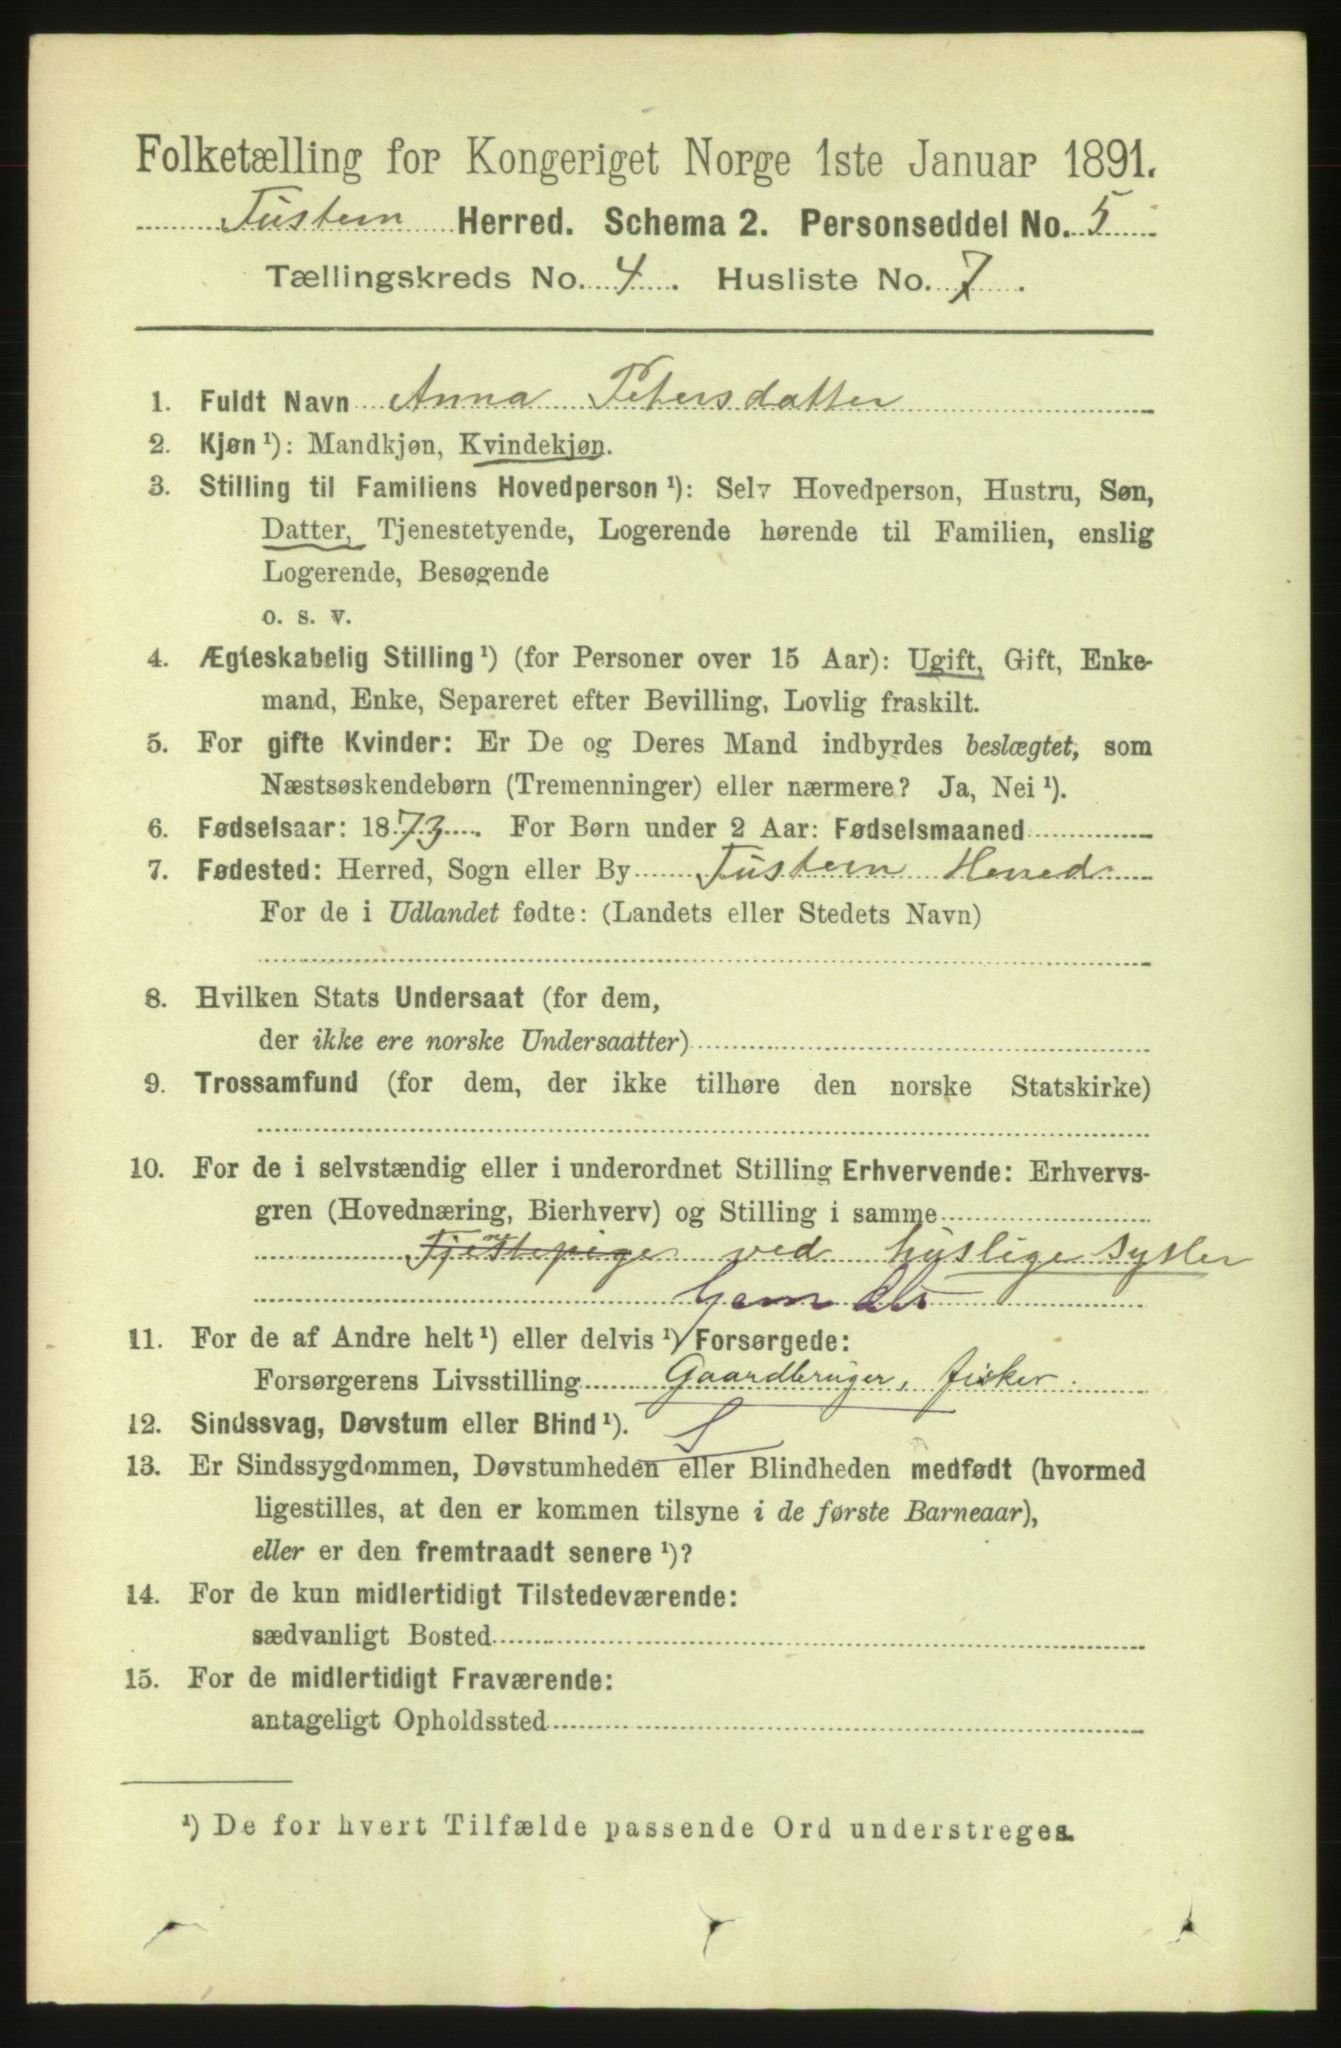 Folketælling for Kongeriget Norge 1ste Januar 1891.
Tustern Herred. Schema 2. Personseddel No. 5
Tællingskreds No. 4. Husliste No. 7.
1. Fuldt Navn Anna Petersdatter
2. Kjøn ¹): Mandkjøn, Kvindekjøn.
3. Stilling til Familiens Hovedperson ¹): Selv Hovedperson, Hustru, Søn,
Datter, Tjenestetyende, Logerende hørende til Familien, enslig
Logerende, Besøgende
o. s. v.
4. Ægteskabelig Stilling ¹) (for Personer over 15 Aar): Ugift, Gift, Enke-
mand, Enke, Separeret efter Bevilling, Lovlig fraskilt.
5. For gifte Kvinder: Er De og Deres Mand indbyrdes beslægtet, som
Næstsøskendebørn (Tremenninger) eller nærmere? Ja, Nei ¹).
6. Fødselsaar: 1873. For Børn under 2 Aar: Fødselsmaaned
7. Fødested: Herred, Sogn eller By Tustern Herred
For de i Udlandet fødte: (Landets eller Stedets Navn)
8. Hvilken Stats Undersaat (for dem,
der ikke ere norske Undersaatter)
9. Trossamfund (for dem, der ikke tilhøre den norske Statskirke)
10. For de i selvstændig eller i underordnet Stilling Erhvervende: Erhvervs-
gren (Hovednæring, Bierhverv) og Stilling i samme
Tjenstepige ved huslige sysler
11. For de af Andre helt ¹) eller delvis ¹) Forsørgede:
Forsørgerens Livsstilling Gaardbruger, fisker
12. Sindssvag, Døvstum eller Blind ¹). S
13. Er Sindssygdommen, Døvstumheden eller Blindheden medfødt (hvormed
ligestilles, at den er kommen tilsyne i de første Barneaar),
eller er den fremtraadt senere ¹)?
14. For de kun midlertidigt Tilstedeværende:
sædvanligt Bosted
15. For de midlertidigt Fraværende:
antageligt Opholdssted
¹) De for hvert Tilfælde passende Ord understreges.